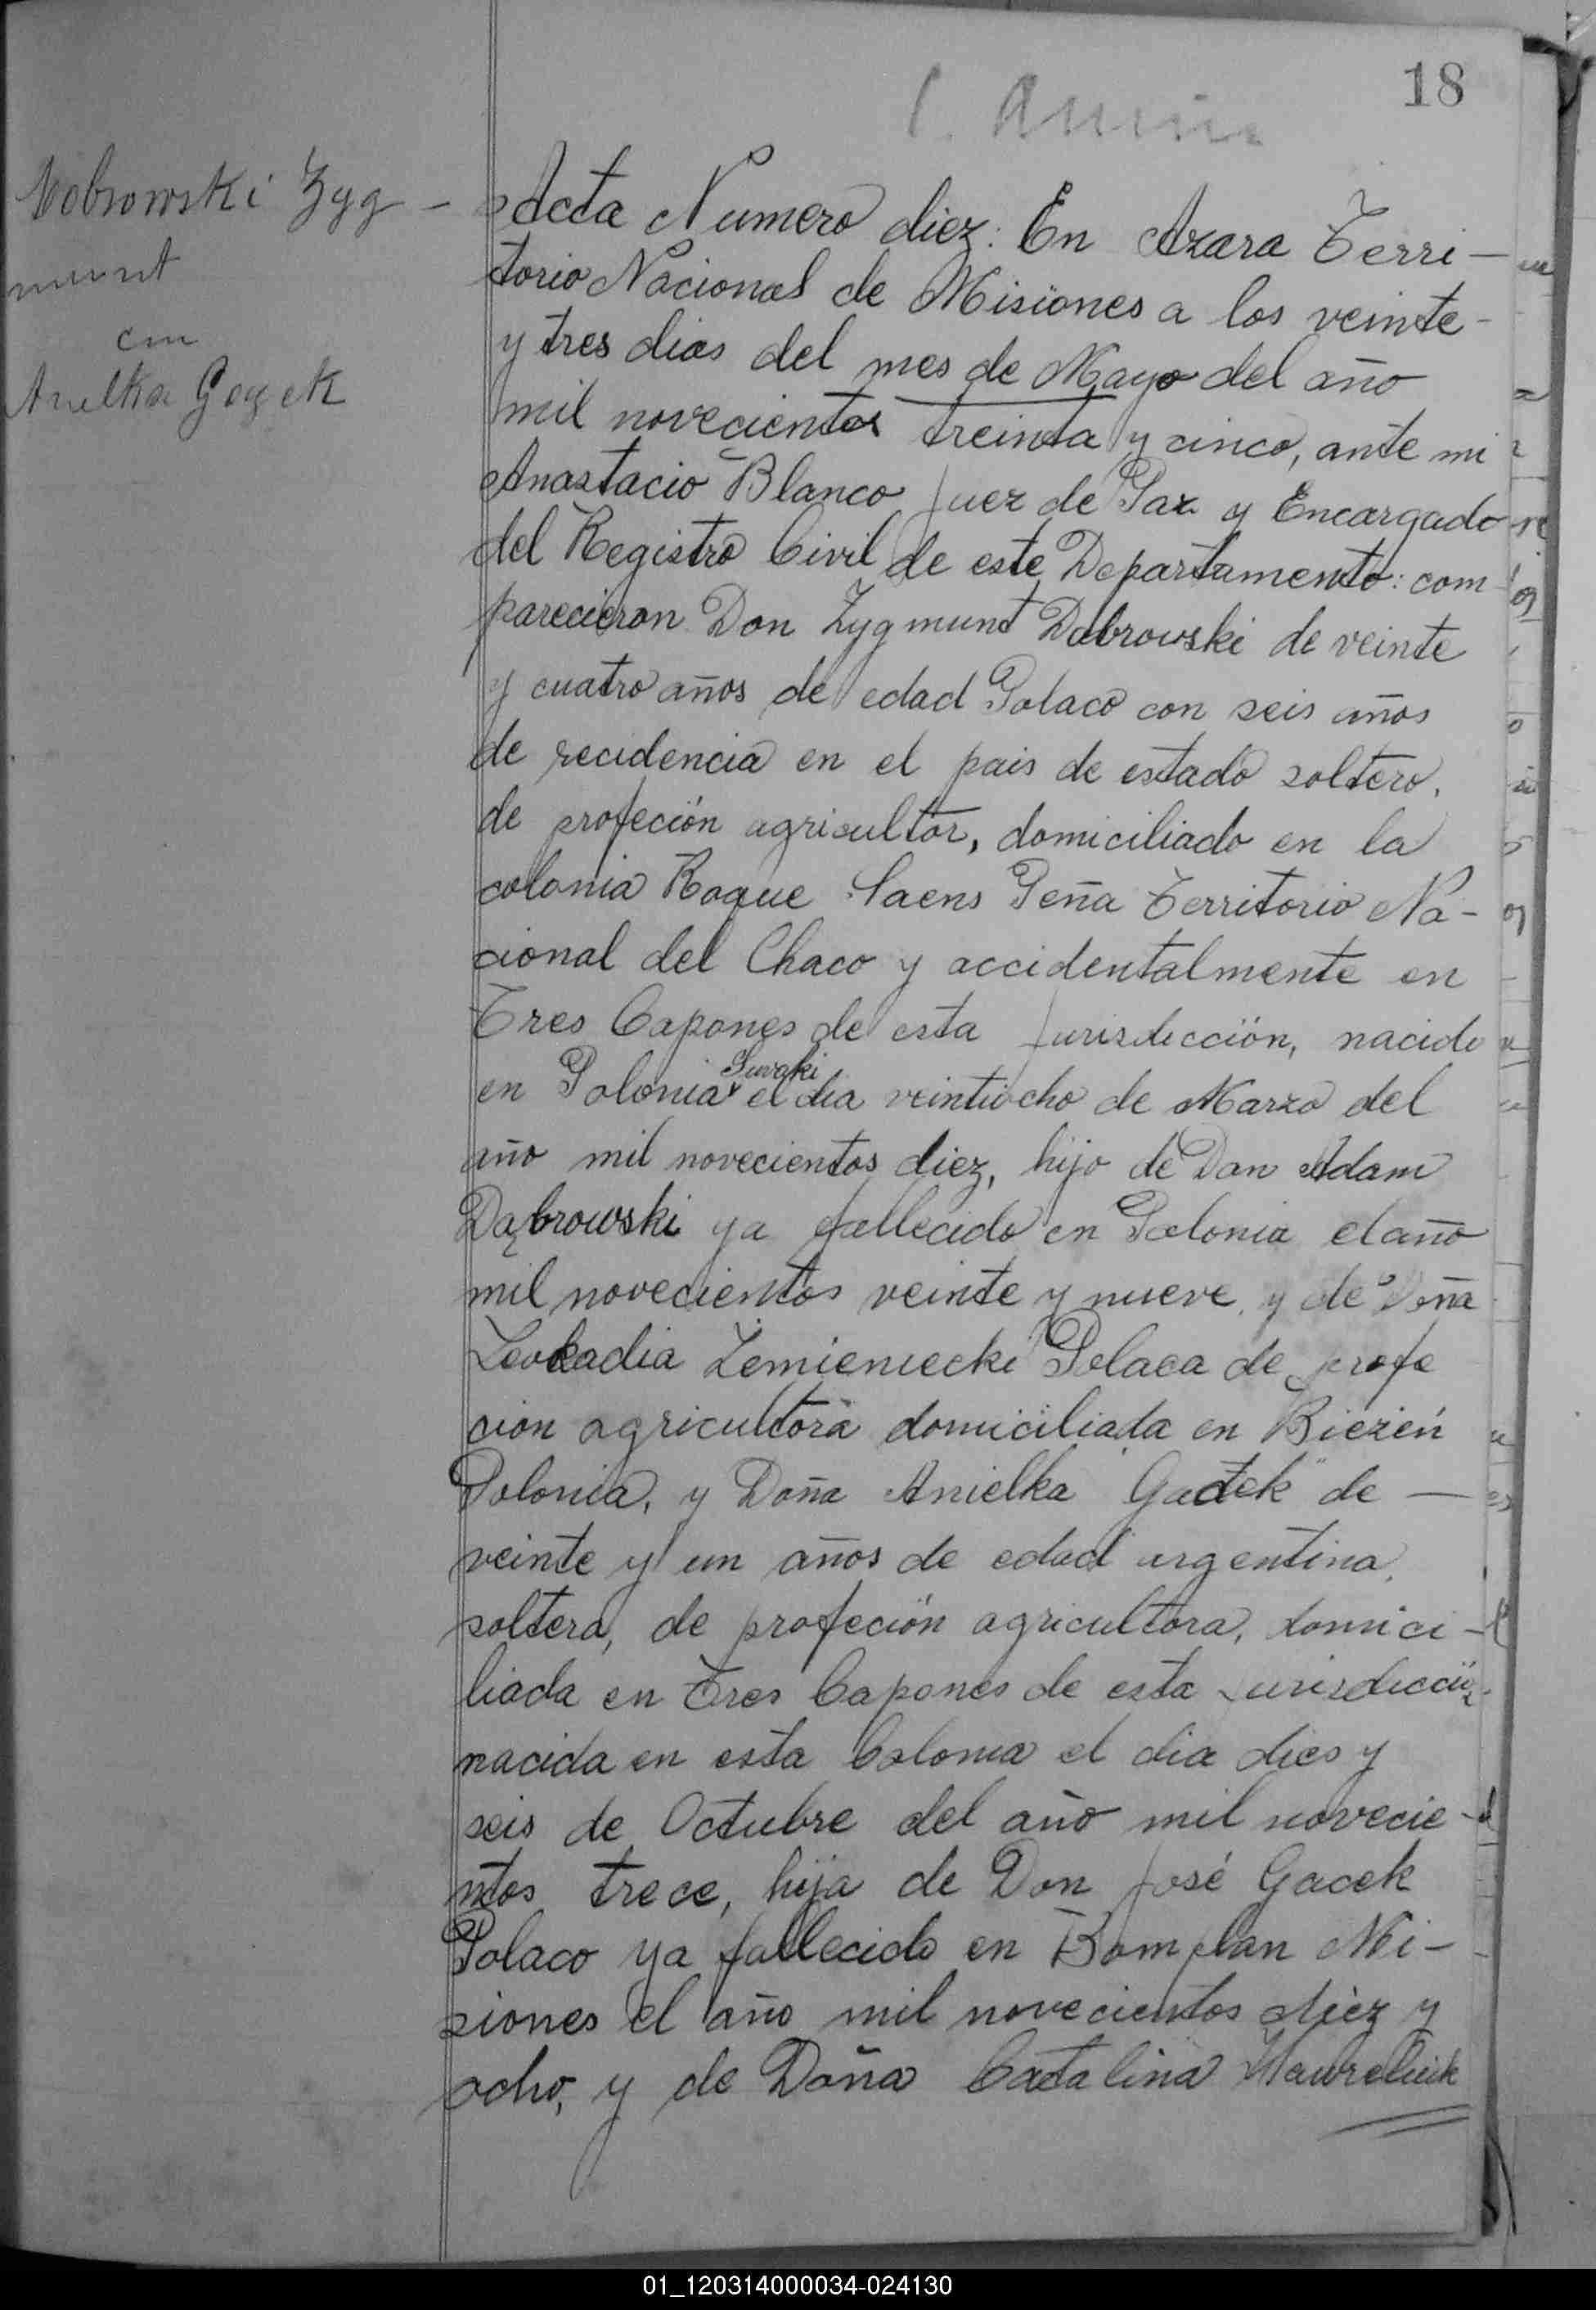 18
Dobrowski Zyg-
munt
con
Anelka Gacek
Acta Numero diez: En Azara Terri-
torio Nacional de Misiones a los veinte-
y tres dias del mes de Mayo del año
mil novecientos treinta y cinco, ante mi
Anastacio Blanco Juez de Paz y Encargado
del Registro Civil de este Departamento: com-
parecieron Don Zygmunt Dabrowski de veinte
y cuatro años de edad Polaco con seis años
de recidencia en el pais de estado soltero,
de profeción agricultor, domiciliado en la
colonia Roque Saens Peña Territorio Na-
cional del Chaco y accidentalmente en
Tres Capones de esta Jurisdicción, nacido
Suvaki
en Polonia x el dia veintiocho de Marzo del
año mil novecientos diez, hijo de Don Adam
Dąbrowski ya fallecido en Polonia el año
mil novecientos veinte y nueve, y de Doña
Leokadia Zemieniecki Polaca de profe
cion agricultora domiciliada en Biezeń
Polonia, y Doña Anielka "Gacek" de —
veinte y un años de edad argentina,
soltera, de profeción agricultora, domici-
liada en Tres Capones de esta Jurisdicción
nacida en esta Colonia el dia dies y
seis de Octubre del año mil novecie-
ntos trece, hija de Don José Gacek
Polaco ya fallecido en Bomplan Mi-
siones el año mil novecientos diez y
ocho, y de Doña Catalina Hawreliuk
01_120314000034-024130